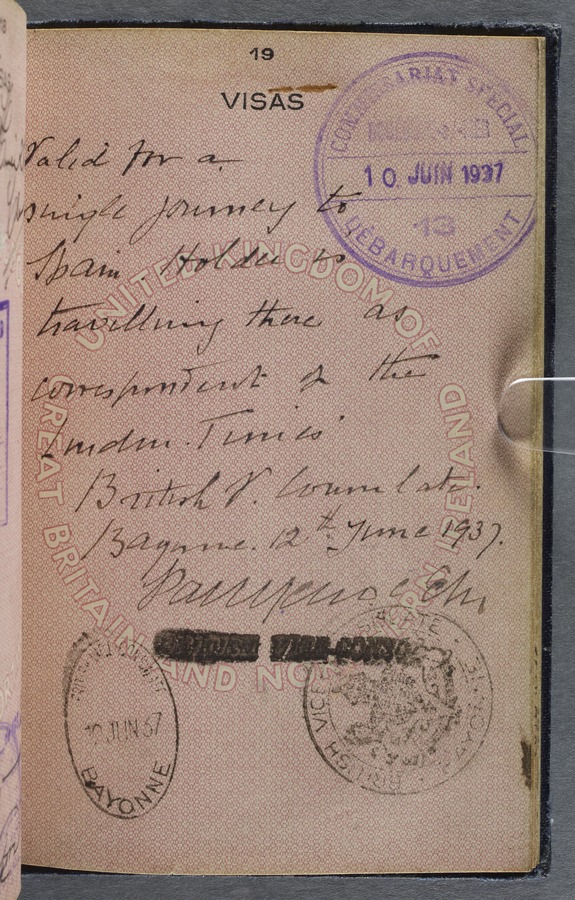 19
VISAS
COMMISSARIAT SPECIAL
10 JUIN 1937
13
DÉBARQUEMENT
Valid for a
single journey to
Spain Holder is
travelling there as
correspondent of the
London Times
British V. Consulate.
Bayonne. 12th June 1937.
BRITISH VICE-CONSUL
JUIN 37
BAYONNE
BRITISH VICE CONSULATE
BAYONNE
UNITED KINGDOM OF
GREAT BRITAIN AND NORTHERN IRELAND